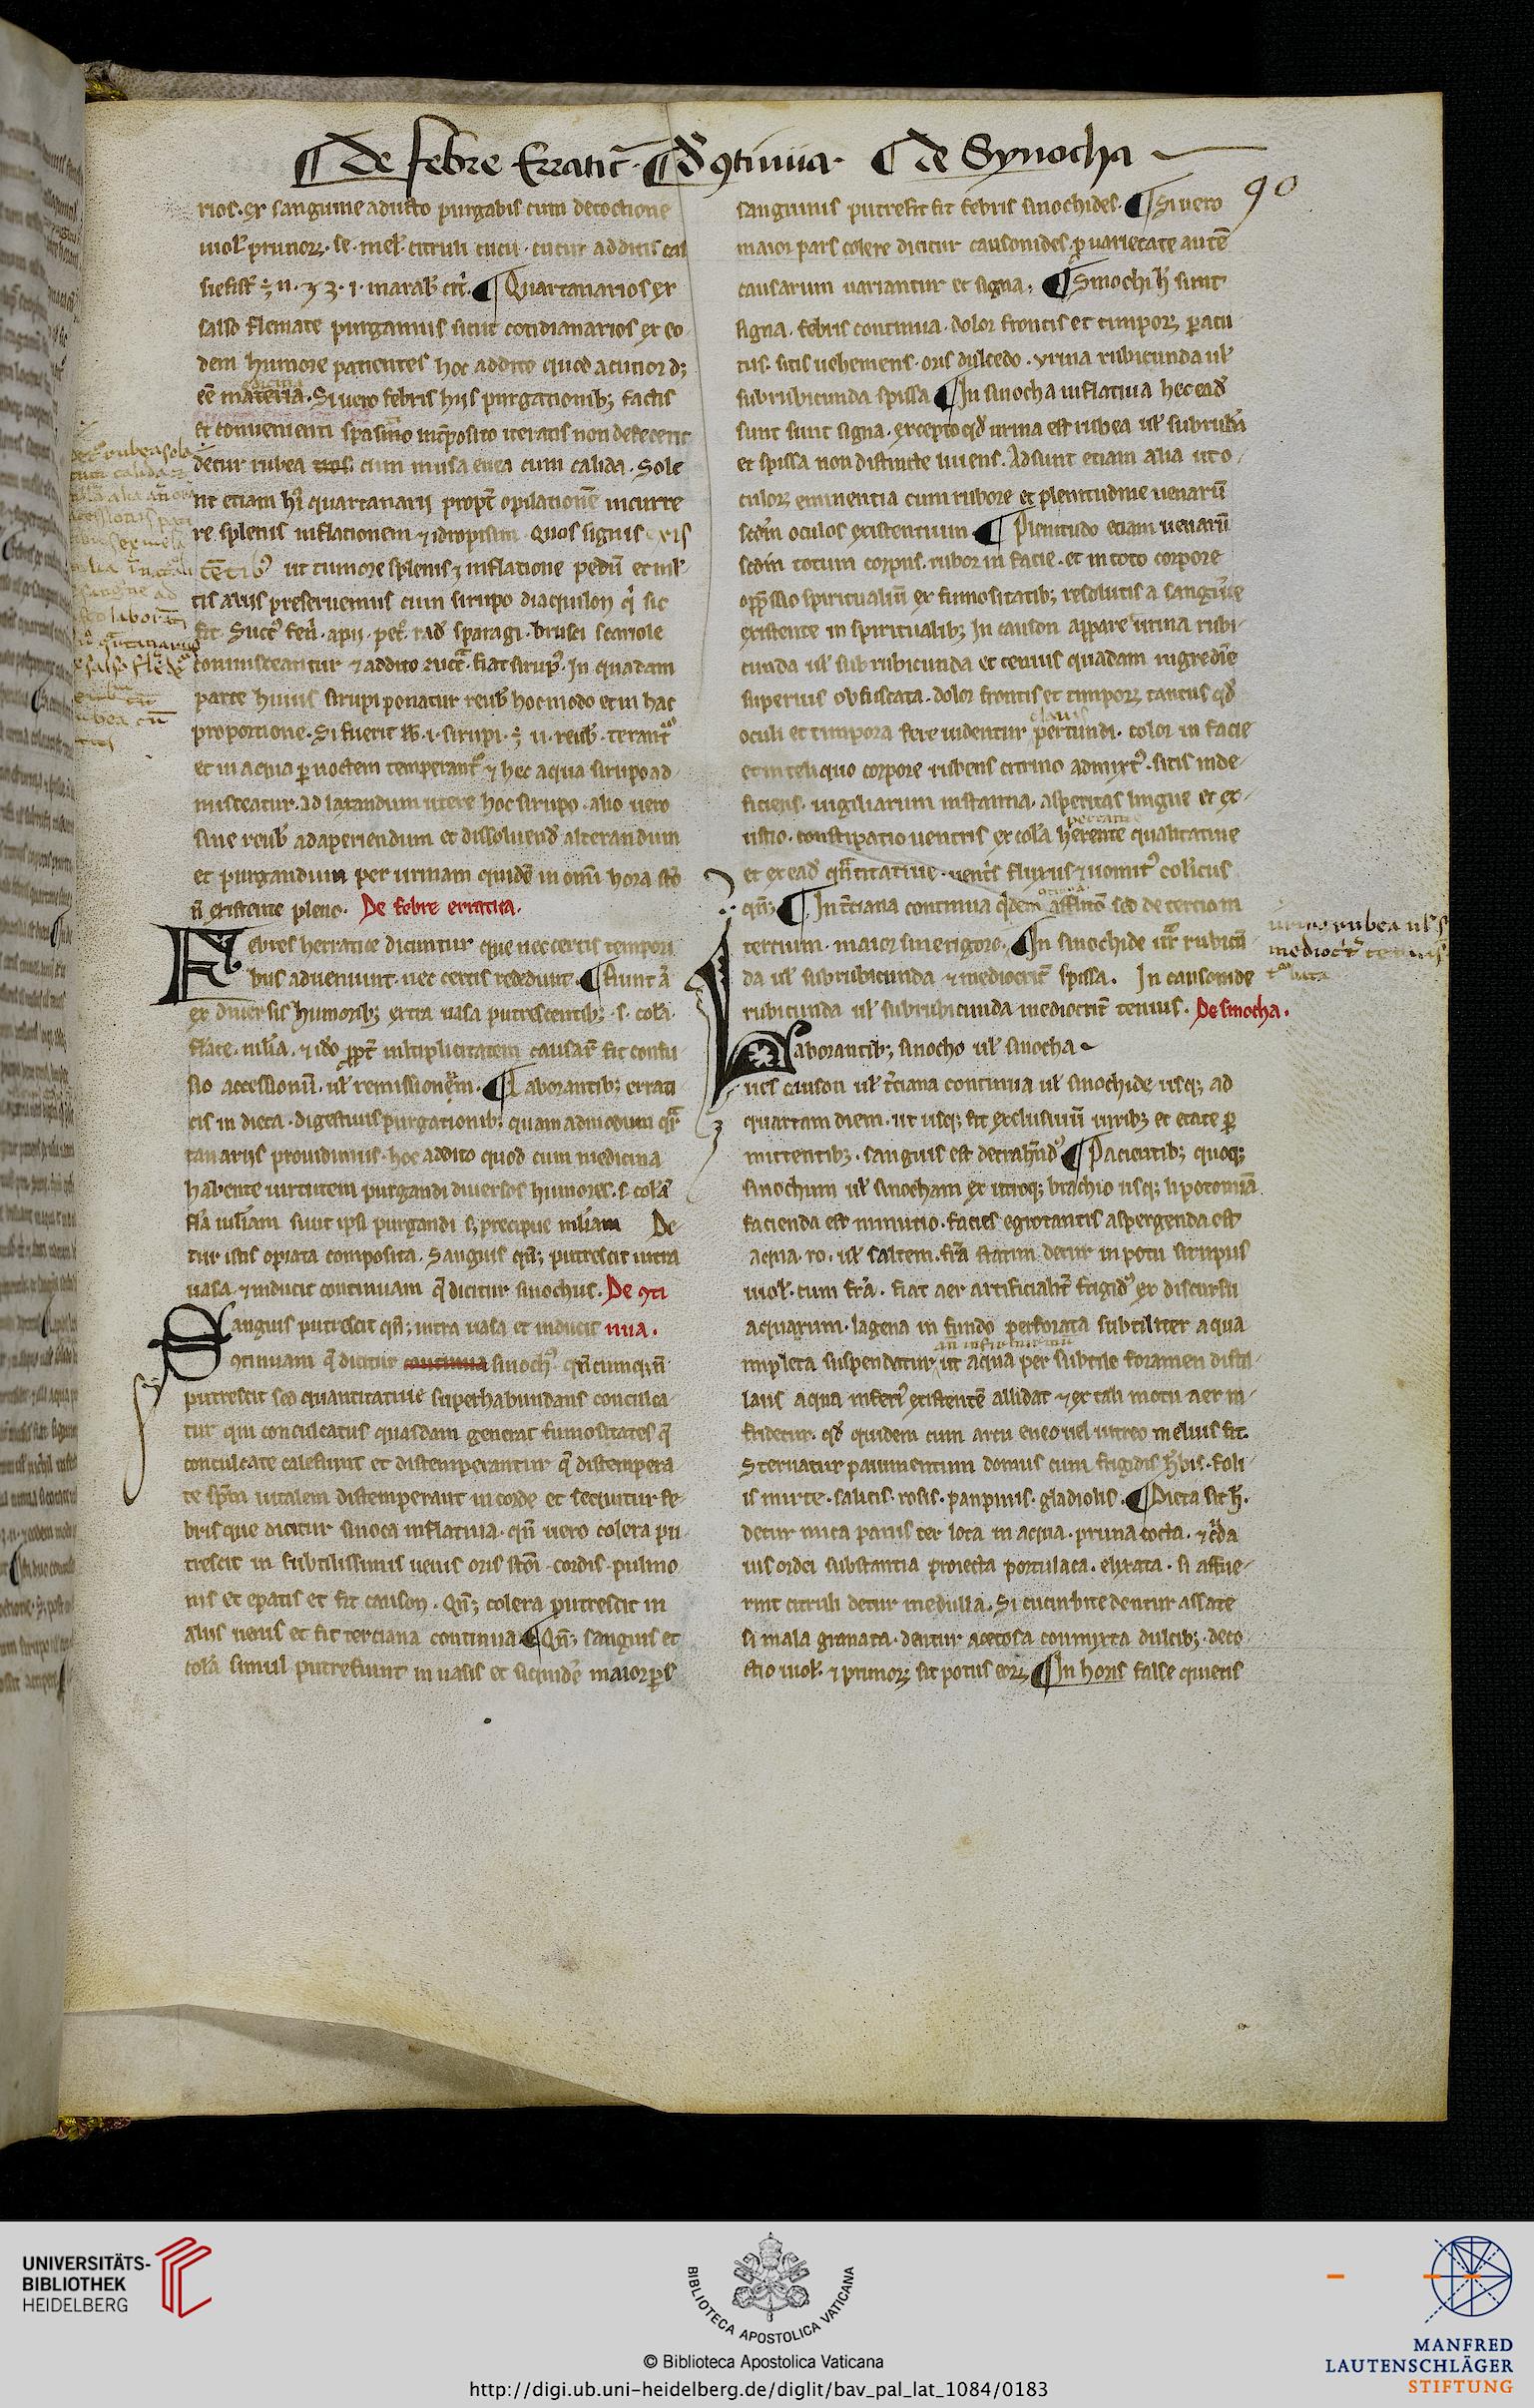 ¶ de febre Erratic̄. ¶ d' ꝯtinua. ¶ de Synocha
90
rios. ex sanguine adusto purgabis cum decoctione
uiol̄ prunoꝝ. se. mel̄. citruli cucu. cucur additis cas
siefistl̄ ℥ ii. ⁊ ʒ. i. mirab̄ cit̄. ¶ Quartanarios ex
salso flemate purgamus sicut cotidianarios ex eo
dem humore patientes hoc addito quod acutior dꝫ
eē materia. Si uero febris hiis purgationibꝫ factis
et conuenienti spasmo int̄posito iteratis non defecerit
detur rubea cum musa enea cum calida. Sole
nt etiam hi quartanarii propt̄ opilationē incurre
re splenis inflationem ⁊ idropisim. quos signis exis
tētibꝰ ut tumore splenis ⁊ inflatione pedū et ml̄
tis aliis preseruemus cum sirupo diaquilon q̄ sic
fit. Succꝰ fen̄. apii. pet̄. rad̄ sparagi. brusci scariole
commisceantur ⁊ addito zucc̄a fiat sirupꝰ. In quadam
parte huius sirupi ponatur reub̄ hoc modo et in hac
proportione. Si fuerit lb̄. i. sirupi. ℥ ii. reub̄. terant̄
et in aqua ꝑ noctem temperant̄ ⁊ hec aqua sirupo ad
misceatur. ad laxandum utere hoc sirupo. alio uero
sine reub̄ ad aperiendum et dissoluend̄ alterandum
et purgandum per urinam quidē in omī hora sto
n̄ existente pleno. De febre erratica.
Febres herratice dicuntur que nec certis tempori
bus adueniunt. nec certis recedunt. ¶ Fiunt ā
ex diuersis humoribꝫ extra uasa putrescentibꝫ. s. col̄a.
fl̄ate. ml̄ia. ⁊ ido ꝓpt̄ multiplicitatem causaꝝ fit confu
sio accessionū. ul̄ remissionem. ¶ Laborantibꝫ errati
cis in dieta. digestiuis purgationibꝫ quam admodum qr̄
tanariis prouidimus. hoc addito quod cum medicina
habente uirtutem purgandi diuersos humores. s. col̄ā
fl̄a ml̄iam sunt ipsi purgandi sꝫ precipue ml̄iam De
tur istis opiata composita. Sanguis qn̄ꝫ putrescit intra
uasa ⁊ inducit continuam q̄ dicitur sinochus. De ꝯti
Sanguis putrescit qn̄ꝫ intra uasa et inducit nua.
ꝯtinuam q̄ dicitur continua sinochꝰ qn̄cumqꝫ n̄
putrescit seo quantitatiue superhabundans conculca
tur qui conculcatus quasdam generat fumositates q̄
conculcate calefiunt et distemperantur q̄ distempera
te sp̄m uitalem distemperant in corde et sequitur fe
bris que dicitur sinoca inflatiua. qn̄ uero colera pu
trescit in subtilissimis uenis oris stoī. cordis. pulmo
nis et epatis et fit causon. Qn̄ꝫ colera putrescit in
aliis uenis et fit terciana continua ¶ Qn̄ꝫ sanguis et
col̄a simul putrefiunt in uasis et siquidē maior ꝑs
sanguinis putrefit fit febris sinochides. ¶ Si uero
maior pars colere dicitur causonides. ꝓ uarietate autē
causarum uariantur et signa. ¶ Sinochi h̄ sunt
signa. febris continua. dolor frontis et timporꝝ ꝑ acu
tus. sitis uehemens. oris dulcedo. yrina rubicunda ul̄
subrubicunda spissa ¶ In sinocha inflatiua hec ead̄
sunt sunt signa. excepto qd̄ urina est rubea ul̄ subrub̄a
et spissa non distincte liuens. Adsunt etiam alia ut o
culoꝝ eminentia cum rubore et plenitudine uenarū
scd̄m oculos existentium ¶ Plenitudo etiam uenarū
scd̄m totum corpus. rubor in facie. et in toto corpore
opp̄ssio spiritualiū ex fumositatibꝫ resolutis a sanguīe
existente in spiritualibꝫ In causon appare urina rubi
cunda ul̄ subrubicunda et tenuis quadam nigredīe
superius obfuscata. dolor frontis et timporꝝ tantus qd̄
clauis
oculi et timpora fere uidentur pertundi. color in facie
et in reliquo corpore rubens citrino admixtꝰ. sitis inde
ficiens. uigiliarum instantia. asperitas lingue et ex
ustio. constipatio uentris ex col̄a herente qualitatiue
et ex ead̄ qn̄titatiue. uent̄s fluxus ⁊ uomitꝰ colicus
qn̄ꝫ ¶ In t̄ciana continua qd̄em affinito seo de tercio in
tertium. maior sine rigore. ¶ In sinochide ur̄ rubicū
da ul̄ subrubicunda ⁊ mediocrit̄ spissa. In causonide
rubicunda ul̄ subrubicunda mediocrit̄ tenuis. De sinocha.
Laborantibꝫ sinocho ul̄ sinocha
uel causon ul̄ t̄ciana continua ul̄ sinochide usqꝫ ad
quartam diem. ut usqꝫ sit exclusiuū uiribꝫ et etate ꝑ
mittentibꝫ. sanguis est detrahēdꝰ ¶ Pacientibꝫ quoqꝫ
sinochum ul̄ sinocham ex utroqꝫ brachio usqꝫ lipotomiā
facienda est minutio. facies egrotantis aspergenda est
aqua. ro. ul̄ saltem. fr̄a statim detur in potu sirupus
uiol̄. cum fr̄a. fiat aer artificialit̄ frigidꝰ ex discursu
aquarum. lagena in fundo perforata subtiliter aqua
an̄ infirmum
impleta suspendatur ut aqua per subtile foramen distil
lans aqua inferiꝰ existentē allidat ⁊ ex tali motu aer in
fridetur. qd̄ quidem cum arcu eneo uel uitreo melius fit.
Sternatur pauimentum domus cum frigidis h̄bis. foli
is mirte. salicis. rosis. panpinis. gladiolis. ¶ Dieta sit h̄.
detur mica panis ter lota in aqua. pruna cocta. ⁊ c̄da
uis ordei substantia proiecta portulaca. elixata. si affue
rint citruli detur medulla. Si cucurbite dentur assate
si mala granata. dentur acetosa conmixta dulcibꝫ. deco
ctio uiol̄. ⁊ prunoꝝ sit potus eoꝝ ¶ In horis false quietis
urina rubea ul̄ s
mediocr̄t̄ tenuis
UNIVERSITÄTS-
BIBLIOTHEK
HEIDELBERG
BIBLIOTECA APOSTOLICA VATICANA
© Biblioteca Apostolica Vaticana
http://digi.ub.uni-heidelberg.de/diglit/bav_pal_lat_1084/0183
MANFRED
LAUTENSCHLÄGER
STIFTUNG